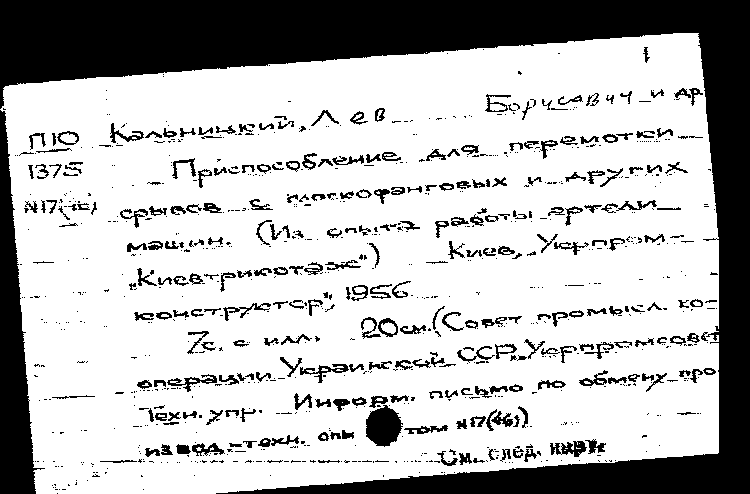 1
ПЮ Кальницкий, Лев Борисович и др
1375 Приспособление для перемотки
N17(46) срывов с плоскофанговых и других
машин. (Из опыта работы артели
„Киевтрикотаж") Киев, Укрпром-
конструктор", 1956
7с. с илл. 20см. (Совет промысл. ко-
операции Украинской ССР „Укрпромсовет
Техн. упр. Информ. письмо по обмену про-
извод.-техн. опытом N17(46))
См. след. карт.